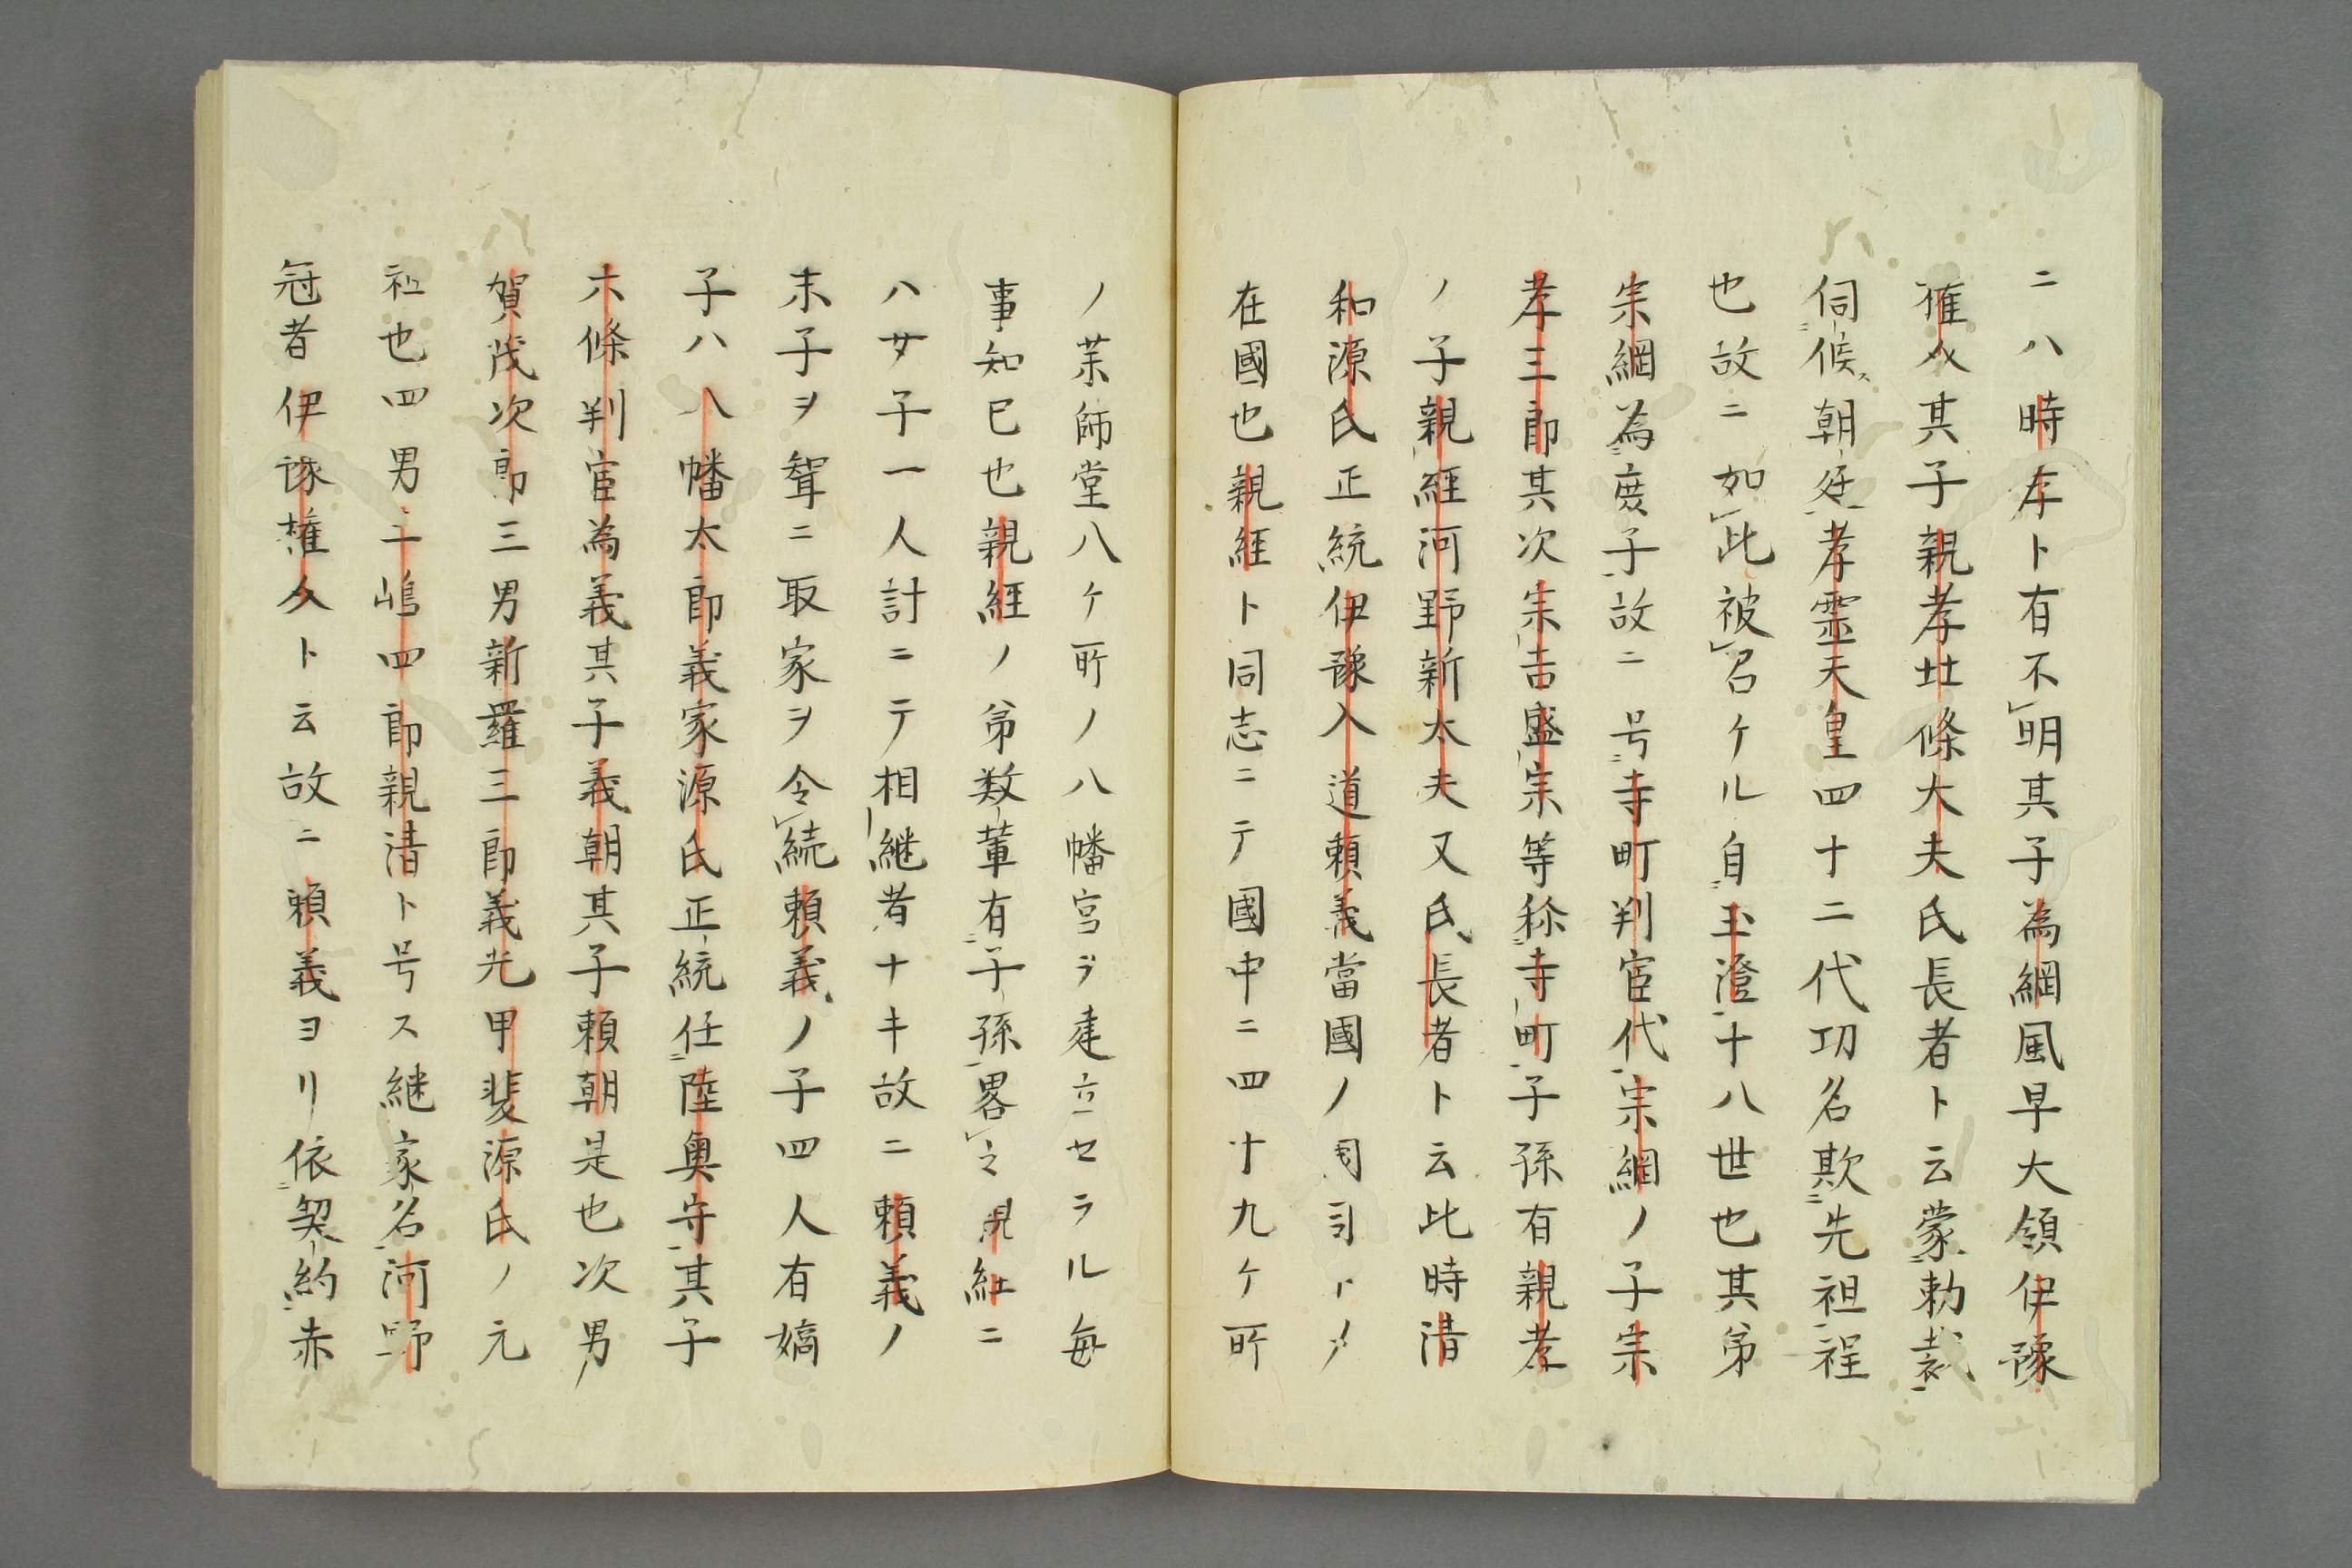 ニハ時孝ト有不明其子為綱風早大領伊豫
権介其子親孝北條大夫氏長者ト云蒙勅裁
伺候ス朝廷孝霊天皇四十二代功名欺先祖程
也故ニ如此被召ケル自玉澄十八世也其弟
宗綱為庶子故ニ号寺町判官代宗綱ノ子宗
孝三郎其次宗吉盛宗等称寺町子孫有親孝
ノ子親経河野新太夫又氏長者ト云此時清
和源氏正統伊豫入道頼義當國ノ国司トメ
在國也親経ト同志ニテ國中ニ四十九ケ所
ノ薬師堂八ケ所ノ八幡宮ヲ建立セラル毎
事知已也親経ノ弟数輩有子孫畧之親経ニ
ハ女子一人計ニテ相継者ナキ故ニ頼義ノ
末子ヲ聟ニ取家ヲ令続頼義ノ子四人有嫡
子ハ八幡太郎義家源氏正統任陸奥守其子
六條判官為義其子義朝其子頼朝是也次男
賀茂次郎三男新羅三郎義光甲斐源氏ノ元
祖也四男三嶋四郎親清ト号ス継家名河野
冠者伊豫権介ト云故ニ頼義ヨリ依契約赤